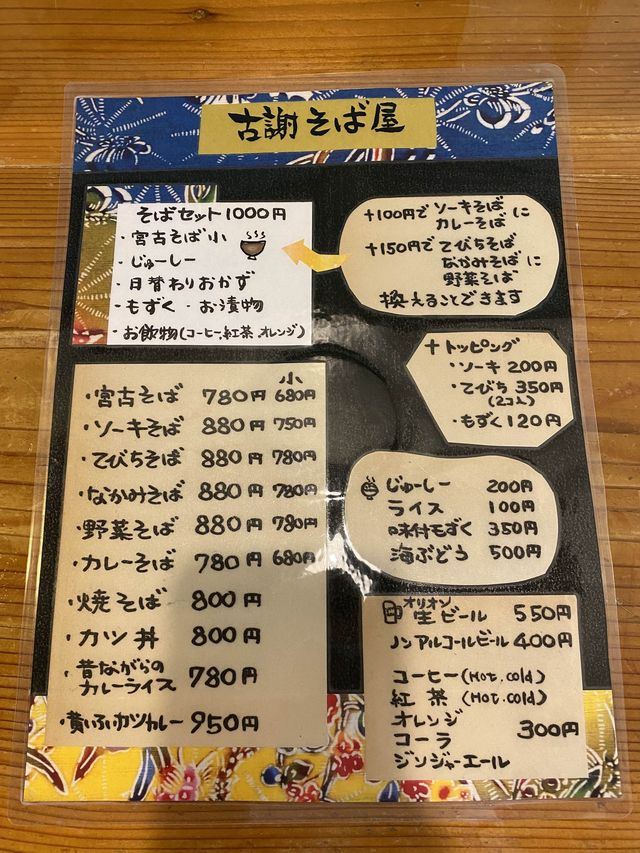 古謝そば屋
そばセット1000円
・宮古そば小
・じゅーしー
・日替わりおかず
・もずく・お漬物
・お飲物(コーヒー,紅茶,オレンジ)
+100円で ソーキそば
カレーそば に
+150円で てびちそば
なかみそば に
野菜そば
換えることできます
小
・宮古そば 780円 680円
・ソーキそば 880円 750円
・てびちそば 880円 780円
・なかみそば 880円 780円
・野菜そば 880円 780円
・カレーそば 780円 680円
・焼そば 800円
・カツ丼 800円
・昔ながらの
カレーライス 780円
・黄いふいカツカレー 950円
+トッピング
・ソーキ 200円
・てびち 350円
(2コ入)
・もずく 120円
じゅーしー 200円
ライス 100円
味付もずく 350円
海ぶどう 500円
オリオン
生ビール 550円
ノンアルコールビール 400円
コーヒー(Hot,cold)
紅茶(Hot,cold)
オレンジ
コーラ 300円
ジンジャーエール